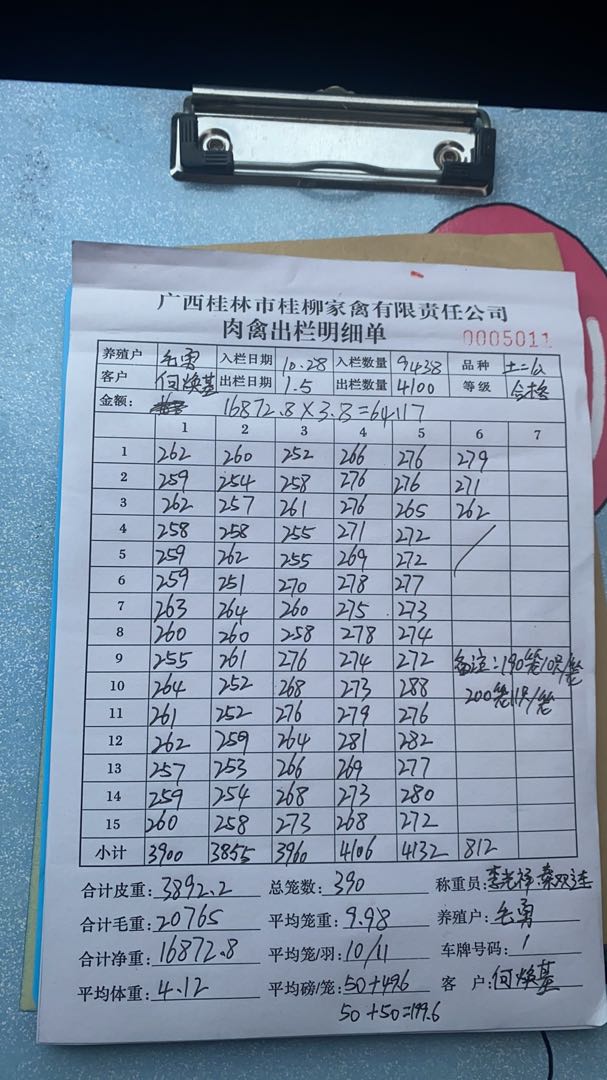 广西桂林市桂柳家禽有限责任公司
肉禽出栏明细单 0005011
养殖户 毛勇 入栏日期 10.28 入栏数量 9438 品种 土二公
客户 何焕基 出栏日期 1.5 出栏数量 4100 等级 合格
金额: 16872.8×3.8=64117
1 2 3 4 5 6 7
1 262 260 252 266 276 279
2 259 254 258 276 276 271
3 262 257 261 276 265 262
4 258 258 255 271 272
5 259 262 255 269 272
6 259 251 270 278 277
7 263 264 260 275 273
8 260 260 258 278 274
9 255 261 276 274 272 备注:190笼10只/笼
10 264 252 268 273 288 200笼11只/笼
11 261 252 276 279 276
12 262 259 264 281 282
13 257 253 266 269 277
14 259 254 268 273 280
15 260 258 273 268 272
小计 3900 3855 3960 4106 4132 812
合计皮重: 3892.2 总笼数: 390 称重员: 李光祥
合计毛重: 20765 平均笼重: 9.98 养殖户: 毛勇
合计净重: 16872.8 平均笼/羽: 10/11 车牌号码: 1
平均体重: 4.12 平均磅/笼: 50+49.6 客 户: 何焕基
50+50=199.6